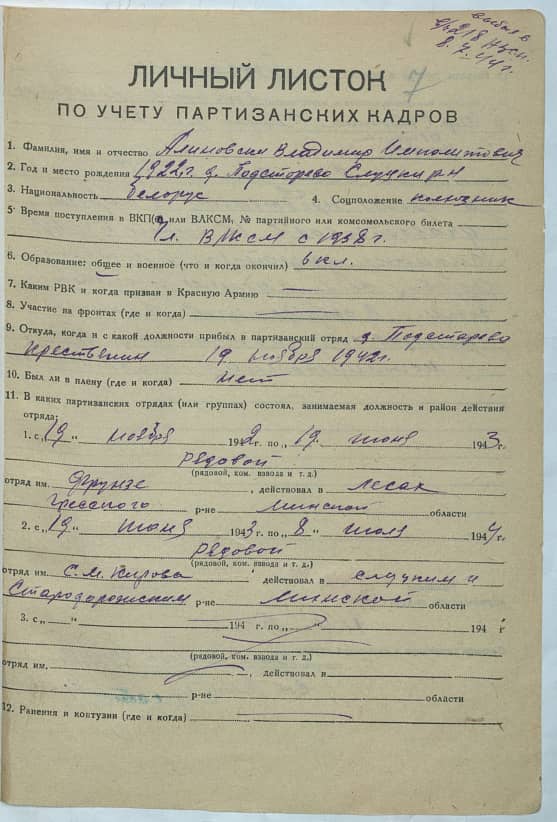 выбыл в
8.7.44г.
7
ЛИЧНЫЙ ЛИСТОК
ПО УЧЕТУ ПАРТИЗАНСКИХ КАДРОВ
1. Фамилия, имя и отчество Алиновский Владимир Ипполитович
2. Год и место рождения 1922г. д. Подстарево Слуцк. р-н
3. Национальность белорус 4. Соцположение колхозник
5 Время поступления в ВКП(б) или ВЛКСМ, № партийного или комсомольского билета
Чл. ВЛКСМ с 1938г.
6. Образование: общее и военное (что и когда окончил) 6 кл.
7. Каким РВК и когда призван в Красную Армию —
8. Участие на фронтах (где и когда) —
9. Откуда, когда и с какой должности прибыл в партизанский отряд д. Подстарево
крестьянин 19 ноября 1942г.
10. Был ли в плену (где и когда) нет
11. В каких партизанских отрядах (или группах) состоял, занимаемая должность и район действия
отряда:
1. с „19" ноября 1942 г. по „19" июня 1943 г.
рядовой
(рядовой, ком. взвода и т. д.)
отряд им. Фрунзе, действовал в лесах
Гресского р-не Минской области
2. с „19" июня 1943 г. по „8" июля 1944 г.
рядовой
(рядовой, ком. взвода и т. д.)
отряд им. С.М. Кирова, действовал в слуцким и
Стародорожским р-не Минской области
3. с „ " 194 г. по „ " 194 г
(рядовой, ком. взвода и т. д.)
отряд им. , действовал в
р-не области
12. Ранения и контузии (где и когда) —